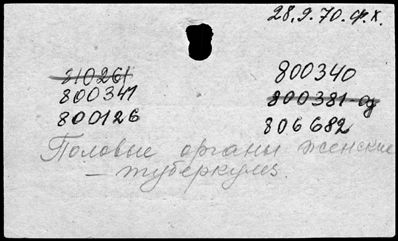 28.9.70. ф.х.
810261
800341
800126
800340
800381-од
806682
Половые органы женские
— туберкулз.